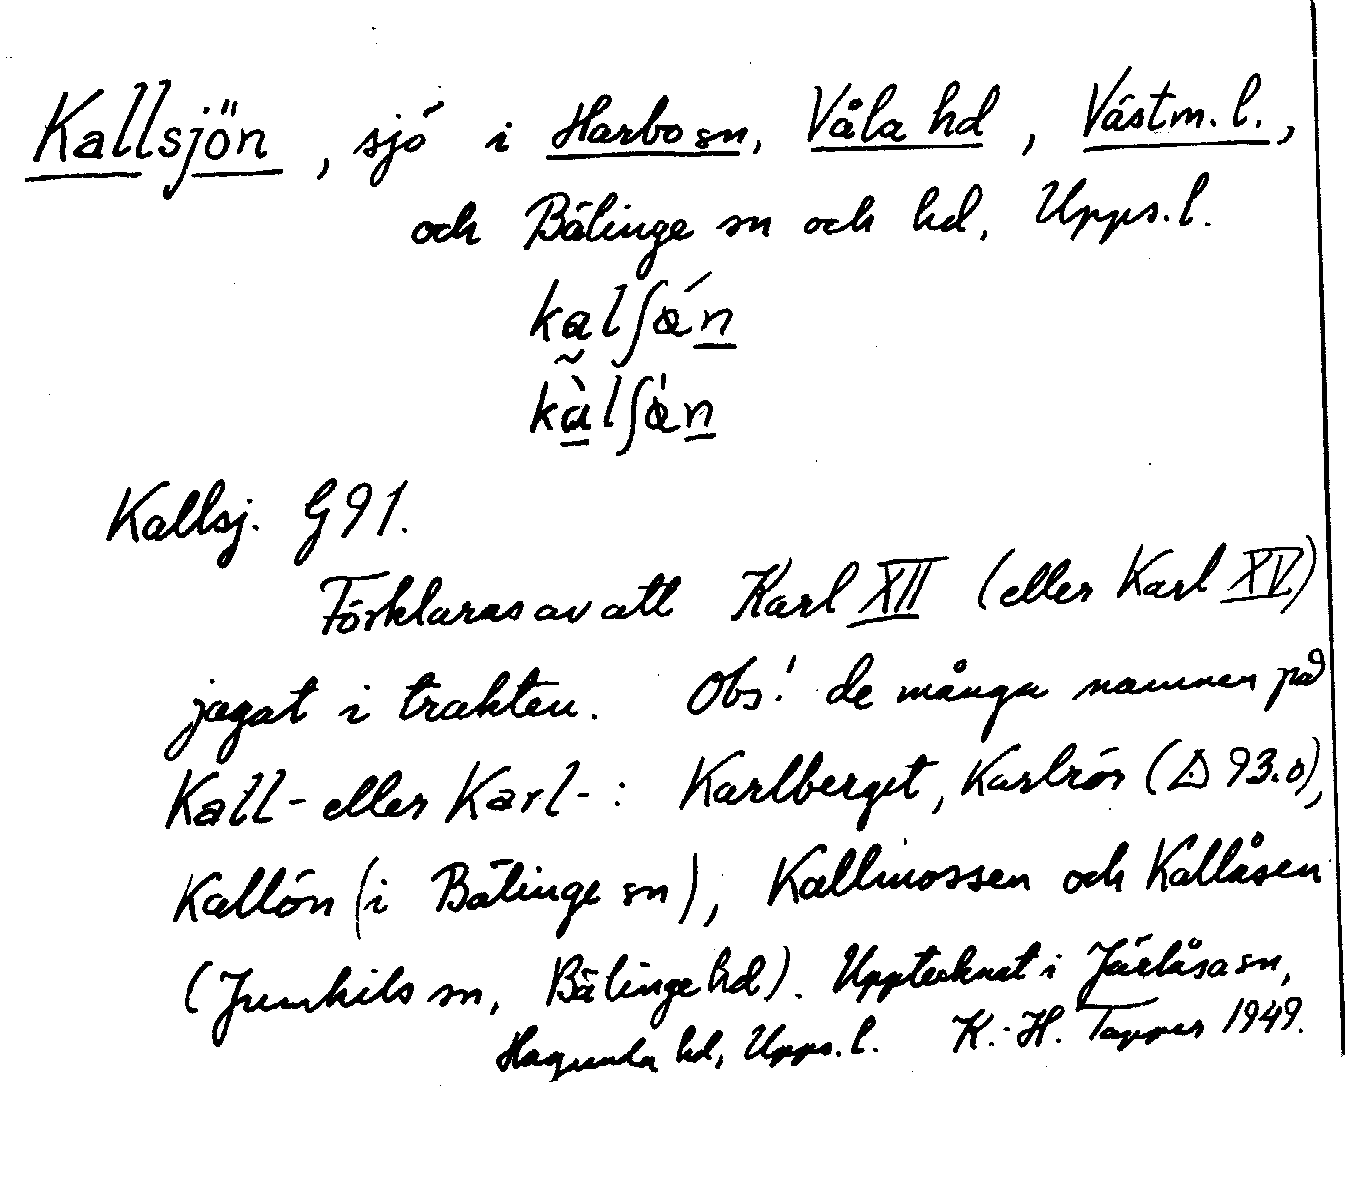 Kallsjön, sjö i Harbo sn, Våla hd, Västm. l.,
och Bälinge sn och hd, Upps. l.
Kallsj. G91.
Förklaras av att Karl XII (eller Karl XV)
jagat i trakten. Obs! de många namnen på
Kall- eller Karl-: Karlberget, Karlrör (D 93.o),
Kallön (i Bälinge sn), Kallmossen och Kallåsen
(Jumkils sn, Bälinge hd). Upptecknat i Järlåsa sn,
Hagunda hd, Upps. l. K.-H. Tapper 1949.